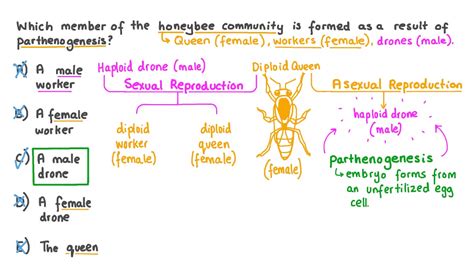 Which member of the honeybee community is formed as a result of
parthenogesis?
Queen (female), workers (female), drones (male).
A) A male
worker
B) A female
worker
C) A male
drone
D) A female
drone
E) The queen
Haploid drone (male)
Diploid Queen
Sexual Reproduction
Asexual Reproduction
diploid
worker
(female)
diploid
queen
(female)
(female)
haploid drone
(male)
parthenogenesis
embryo forms from
an unfertilized egg
cell.